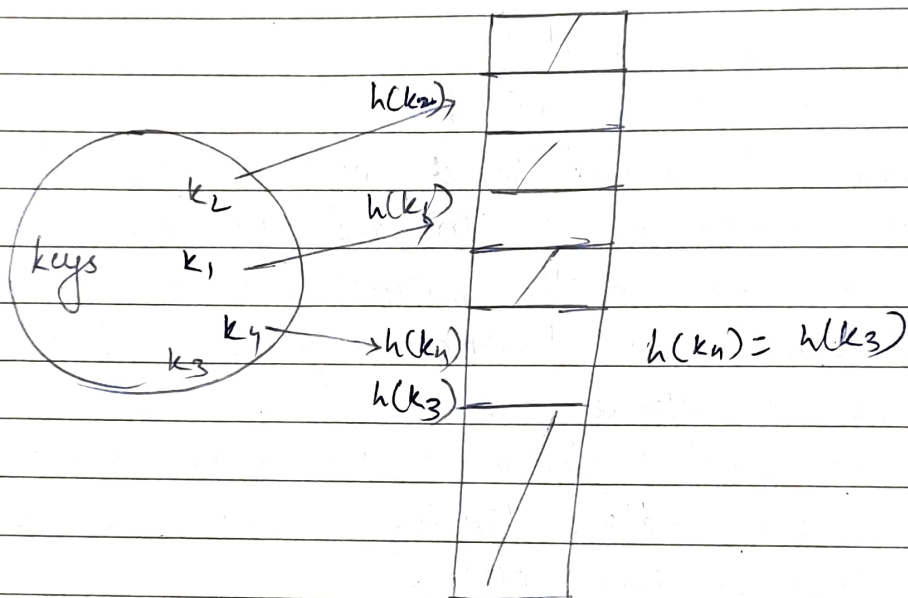 h(k2)
k2
h(k1)
keys k1
k4 h(k4) h(k4) = h(k3)
k3
h(k3)